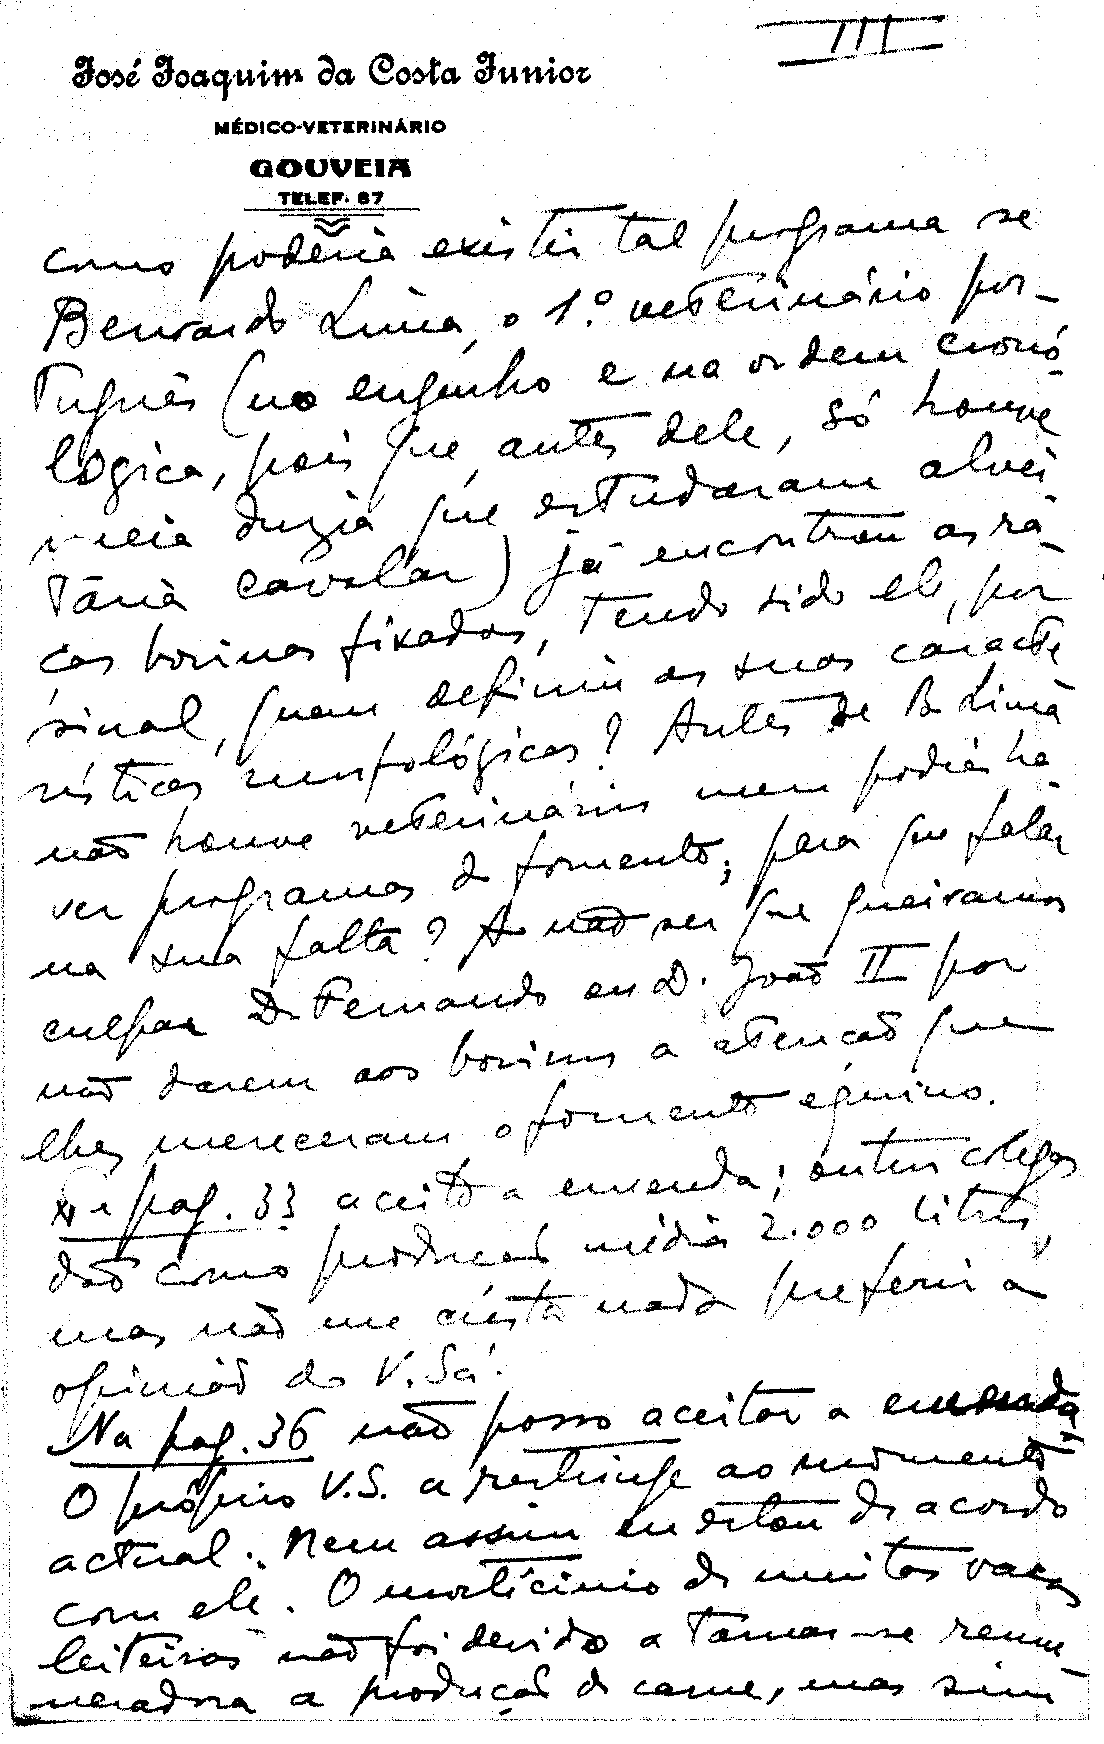 III
José Joaquim da Costa Junior
MÉDICO-VETERINÁRIO
GOUVEIA
TELEF. 87
como poderia existir tal programa se
Bernardo Lima, o 1.º veterinário por-
tuguês (no engenho e na ordem cronó-
logica, pois que, antes dele, só houve
meia duzia que estudaram alvei
taria cavalar) já encontrou as ra-
ças bovinas fixadas, tendo sido ele, por
sinal, quem definiu as suas caracte
rísticas morfológicas? Antes de B. Lima
não houve veterinários nem podia ha-
ver programas de fomento; para que falar
na sua falta? A não ser que queiramos
culpar D. Fernando ou D. João II por
não darem aos bovinos a atenção que
lhes mereceram o fomento équino.
pag. 33 aceito a emenda; outros colegas
dão como produção média 2.000 litros,
mas não me custa nada preferir a
opinião de V. Sá.
Na pag. 36 não posso aceitar a emenda.
O próprio V. S. a restringe ao momento
actual. Nem assim eu estou de acordo
com ele. O morticinio de muitas vacas
leiteiras não foi devido a tornar-se remu-
neradora a produção de carne, mas sim